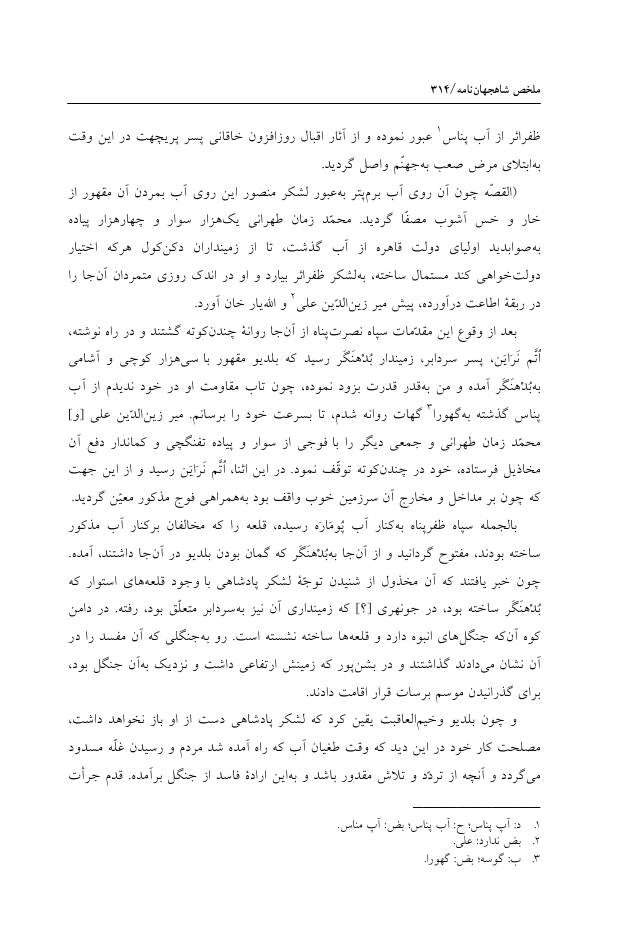 ملخص شاهجهان‌نامه/۳۱۴
ظفراثر از آب پناس۱ عبور نموده و از آثار اقبال روزافزون خاقانی پسر پریچهت در این وقت
به‌ابتلای مرض صعب به‌جهنّم واصل گردید.
(القصّه چون آن روی آب برم‌پتر به‌عبور لشکر منصور این روی آب بمردن آن مقهور از
خار و خس آشوب مصفّا گردید. محمّد زمان طهرانی یک‌هزار سوار و چهارهزار پیاده
به‌صوابدید اولیای دولت قاهره از آب گذشت، تا از زمینداران دکن‌کول هرکه اختیار
دولت‌خواهی کند مستمال ساخته، به‌لشکر ظفراثر بیارد و او در اندک روزی متمردان آن‌جا را
در ربقهٔ اطاعت درآورده، پیش میر زین‌الدّین علی۲ و الله‌یار خان آورد.
بعد از وقوع این مقدّمات سپاه نصرت‌پناه از آن‌جا روانهٔ چندن‌کوته گشتند و در راه نوشته،
اُتَّم نَرَایَن، پسر سردابر، زمیندار بُدْهنَگَر رسید که بلدیو مقهور با سی‌هزار کوچی و آشامی
به‌بُدْهنَگَر آمده و من به‌قدر قدرت بزود نموده، چون تاب مقاومت او در خود ندیدم از آب
پناس گذشته به‌گهورا۳ گهات روانه شدم، تا بسرعت خود را برسانم. میر زین‌الدّین علی [و]
محمّد زمان طهرانی و جمعی دیگر را با فوجی از سوار و پیاده تفنگچی و کماندار دفع آن
مخاذیل فرستاده، خود در چندن‌کوته توقّف نمود. در این اثنا، اُتَّم نَرَایَن رسید و از این جهت
که چون بر مداخل و مخارج آن سرزمین خوب واقف بود به‌همراهی فوج مذکور معیّن گردید.
بالجمله سپاه ظفرپناه به‌کنار آب پُومَارَه رسیده، قلعه را که مخالفان برکنار آب مذکور
ساخته بودند، مفتوح گردانید و از آن‌جا به‌بُدْهنَگَر که گمان بودن بلدیو در آن‌جا داشتند، آمده.
چون خبر یافتند که آن مخذول از شنیدن توجّهٔ لشکر پادشاهی با وجود قلعه‌های استوار که
بُدْهنَگَر ساخته بود، در جونهری [؟] که زمینداری آن نیز به‌سردابر متعلّق بود، رفته. در دامن
کوه آن‌که جنگل‌های انبوه دارد و قلعه‌ها ساخته نشسته است. رو به‌جنگلی که آن مفسد را در
آن نشان می‌دادند گذاشتند و در بشن‌پور که زمینش ارتفاعی داشت و نزدیک به‌آن جنگل بود،
برای گذرانیدن موسم برسات قرار اقامت دادند.
و چون بلدیو وخیم‌العاقبت یقین کرد که لشکر پادشاهی دست از او باز نخواهد داشت،
مصلحت کار خود در این دید که وقت طغیان آب که راه آمده شد مردم و رسیدن غلّه مسدود
می‌گردد و آنچه از تردّد و تلاش مقدور باشد و به‌این ارادهٔ فاسد از جنگل برآمده. قدم جرأت
۱. د: آپ پناس؛ ح: آب پناس؛ بض: آپ مناس.
۲. بض ندارد: علی.
۳. ب: گوسه؛ بض: گهورا.